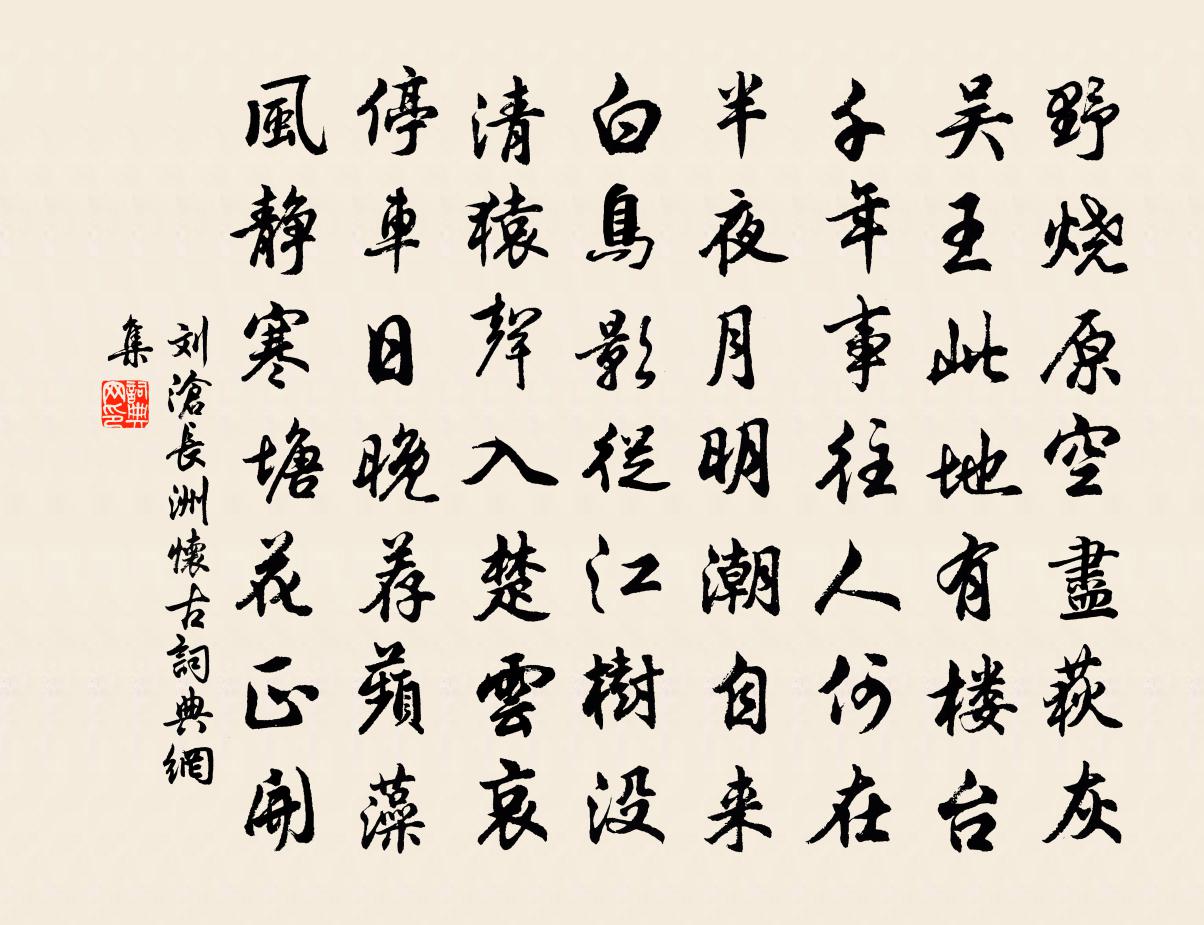 野烧原空盡荻灰
吴王此地有楼台
千年事往人何在
半夜月明潮自来
白鳥影從江樹没
清猿聲入楚雲哀
停車日晚荐蘋藻
風静寒塘花正開
刘滄長洲懷古詞典網
集
詞典網印